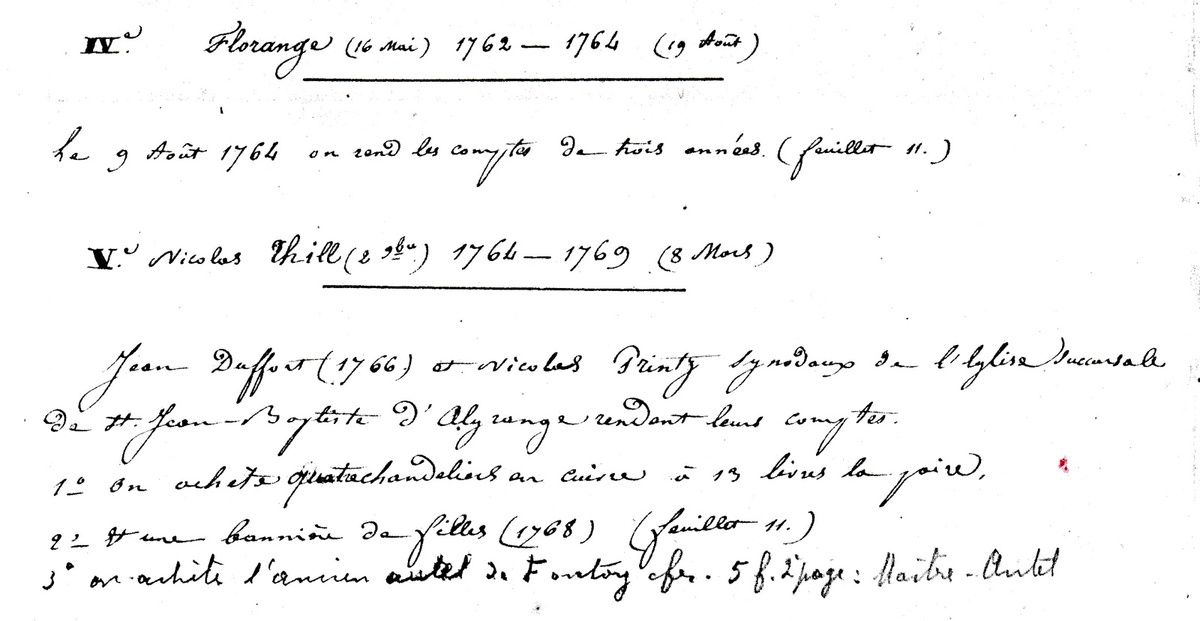 IVe. Florange (16 Mai) 1762 — 1764 (19 Août)
Le 9 Août 1764 on rend les comptes de trois années. (feuillet 11.)
Ve. Nicolas Thill (2 9bre) 1764 — 1769 (8 Mars)
Jean Duffort (1766) et Nicolas Printz synodaux de l'Eglise succursale
de St. Jean-Baptiste d'Algrange rendent leurs comptes.
1° On achete quatre chandeliers en cuivre à 13 livres la paire.
2° Et une bannière de filles (1768) (feuillet 11.)
3° on achète l'ancien autel de Fontoy cfr. 5 f. 2 page: Maître-Autel